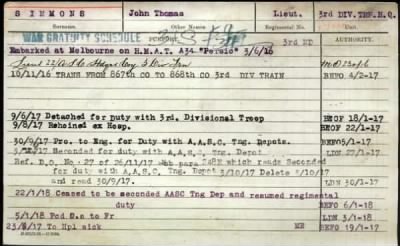 SIMMONS John Thomas Lieut. 3rd DIV.TRN.H.Q.
Surname. Other Names. Rank.
WAR GRATUITY SCHEDULE 3rd MD AUTHORITY.
Embarked at Melbourne on H.M.A.T. A34 "Persic" 3/6/16
10/11/16 TRANS FROM 867th CO TO 868th CO 3rd DIV TRAIN BEFO 4/2-17
9/6/17 Detached for Duty with 3rd. Divisional Troop BEOF 18/1-17
9/8/17 Rejoined ex Hosp. BEOF 22/1-17
30/9/17 Pro. to Eng. for Duty with A.A.S.C. Tng. Depots. BEFO5/1-17
Seconded for duty with A.A.S.C. Tng. Depot. LDN 27/1-17
Ref. D.O. No. 27 of 26/11/17 para 2482 which reads Seconded
for duty with A.A.S.C. Tng. Depot 3/10/17 Delete 3/10/17
and read 30/9/17. LDN 30/1-17
22/1/18 Ceased to be seconded AASC Tng Dep and resumed regimental
duty BEFO 6/1-18
5/1/18 Pcd O.s to Fr LDN 3/1-18
/17 To Hpl sick ME BEFO 19/1-17